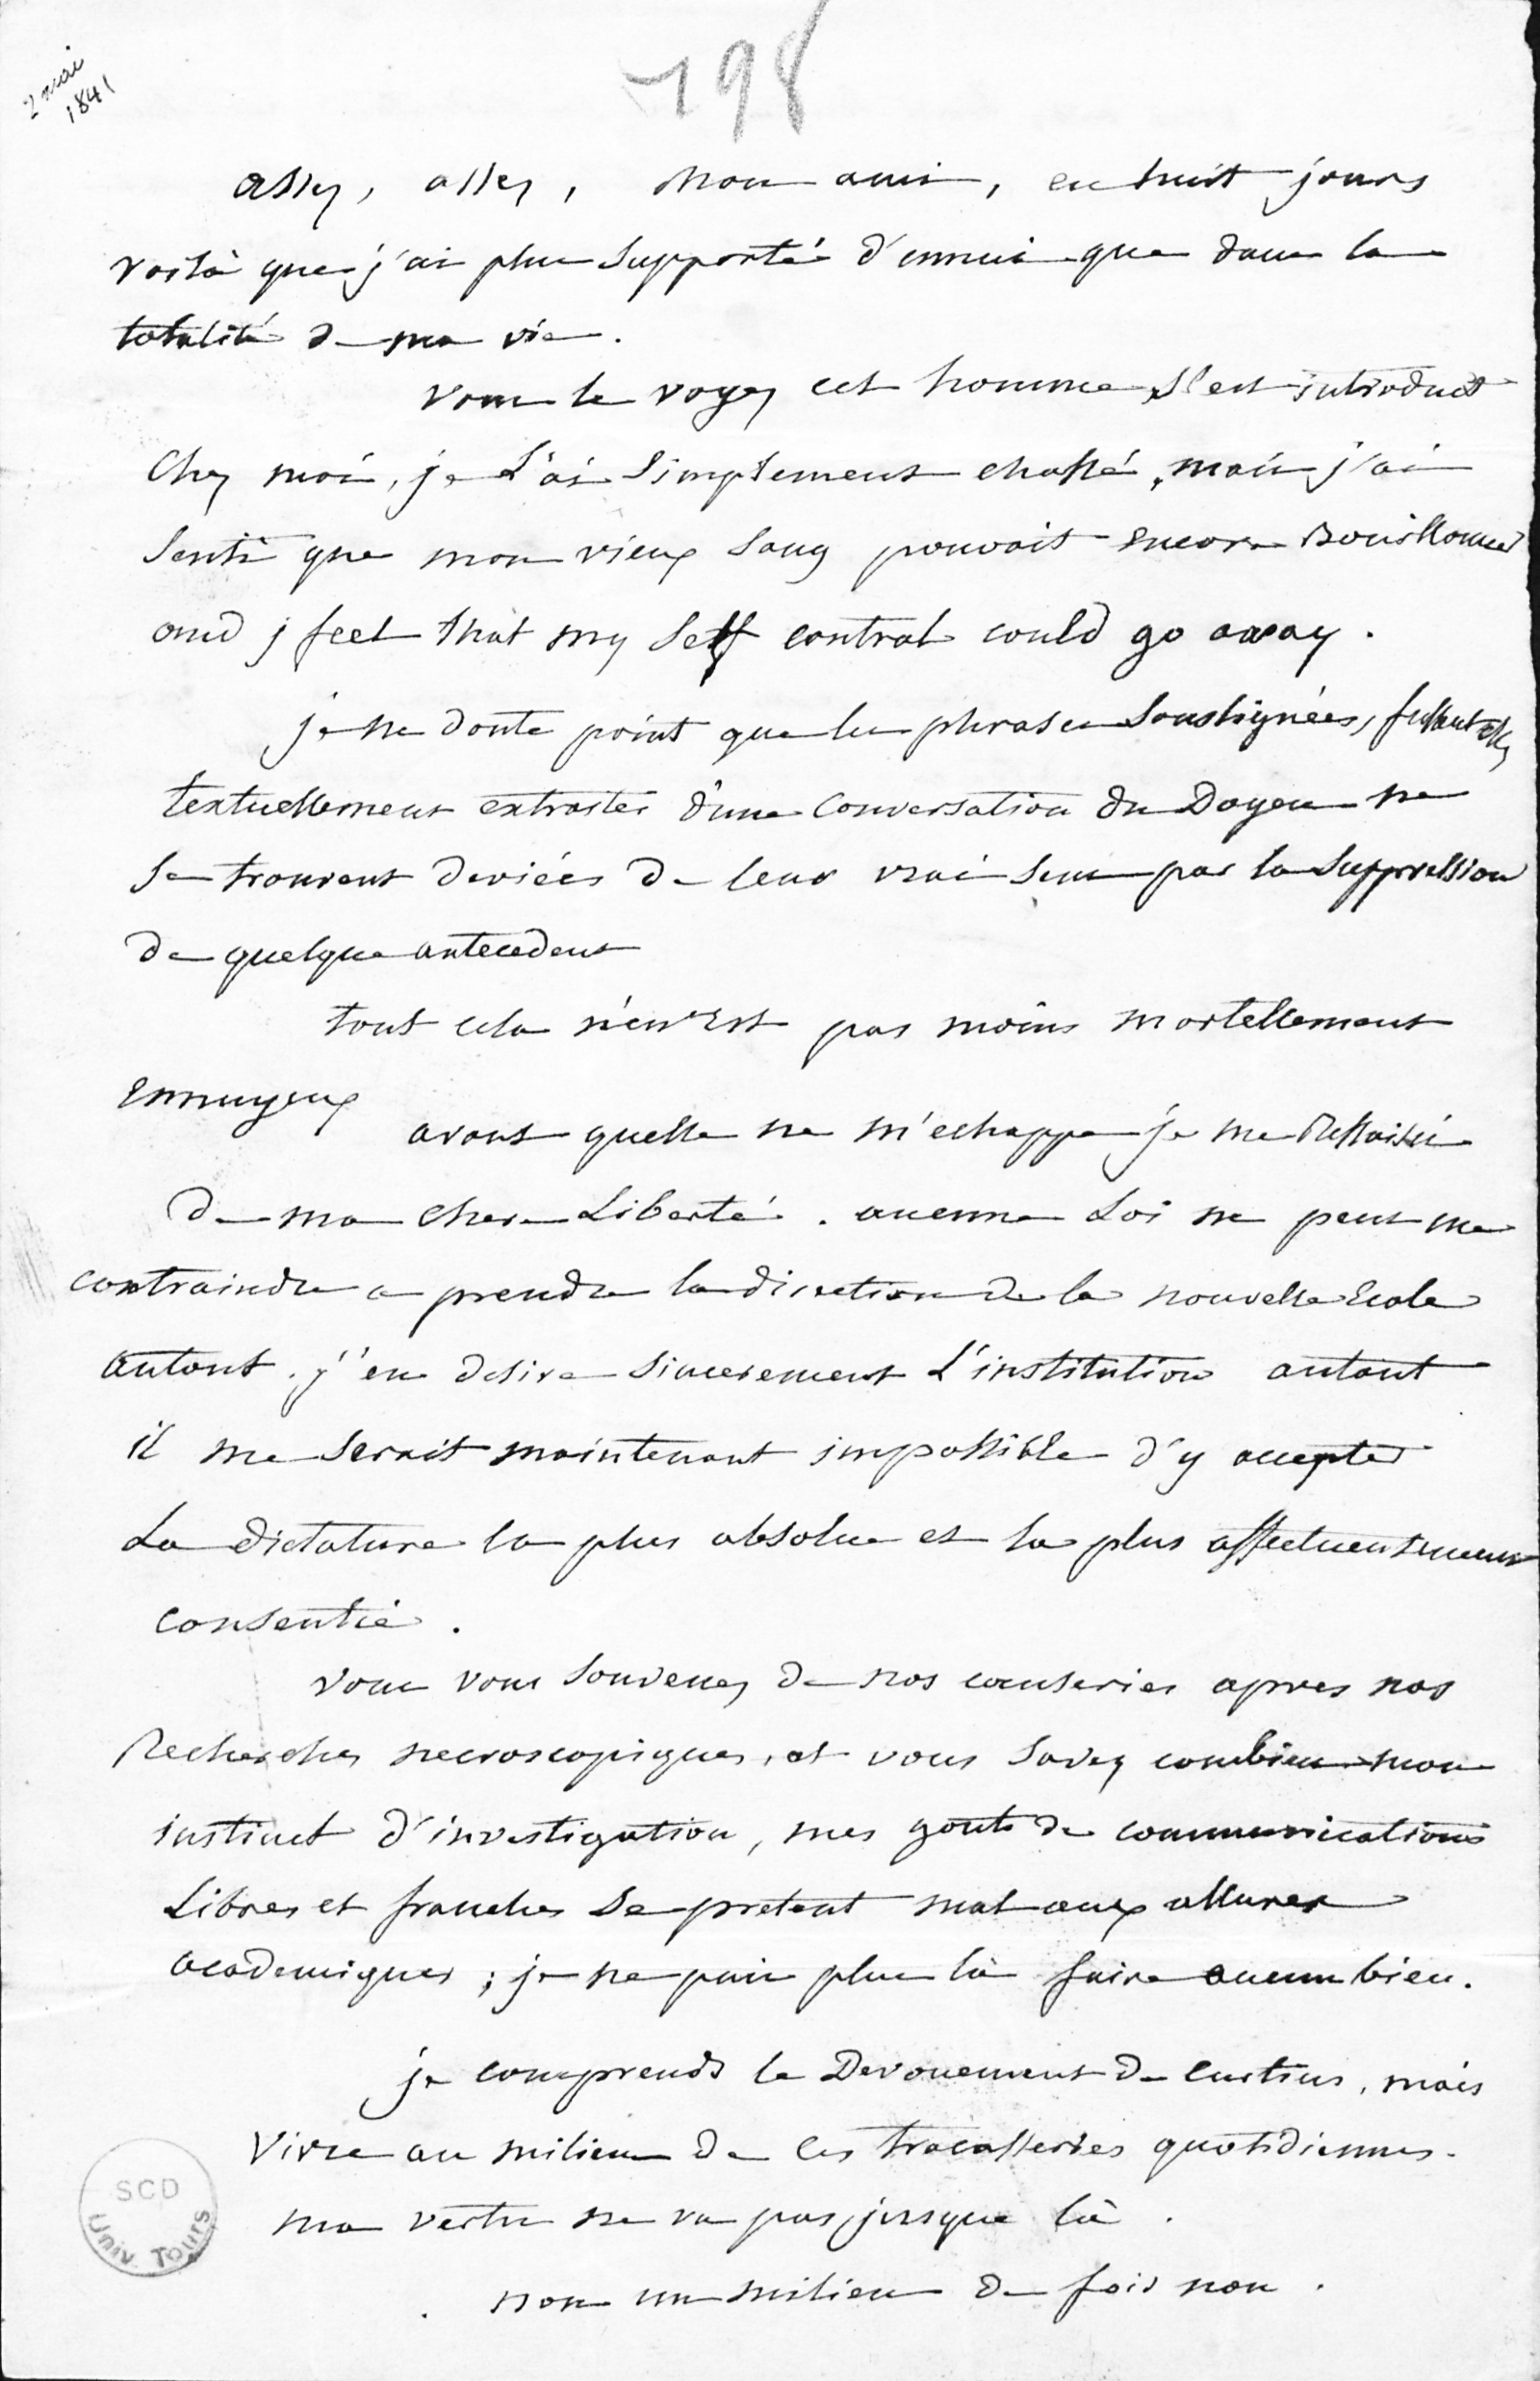 2 mai
1841
198
assez, assez, mon ami, en huit jours
voilà que j'ai plus supporté d'ennui que dans la
totalité de ma vie.
vous le voyez cet homme s'est introduit
chez moi, je l'ai simplement chassé, mais j'ai
senti que mon vieux sang pouvait encore Bouillonner
and j feel that my self control could go away.
je ne doute point que les phrases soulignées, fussent elles
textuellement extraites d'une conversation du Doyen ne
se trouvent deviées de leur vrai sens par la suppression
de quelque antecedent
tout cela n'en Est pas moins mortellement
Ennuyeux
avant quelle ne m'echappe je me Ressaisis
de ma chere Liberté. aucune Loi ne peut me
contraindre a prendre la direction de la nouvelle Ecole
autant j'en desire sincerement L'institution autant
il me serait maintenant impossible d'y accepter
La dictature la plus absolue et la plus affectueusement
consentie.
vous vous souvenez de nos causeries apres nos
Recherches necroscopiques, et vous savez combien mon
instinct d'investigation, mes gouts de communications
Libres et franches se pretent mal aux allures
academiques; je ne puis plus là faire aucun bien.
je comprends le Devouement de Curtius, mais
Vivre au milieu de ces tracasseries quotidiennes.
ma vertu ne va pas jusque là.
non un milieu de fois non.
SCD
Univ. Tours